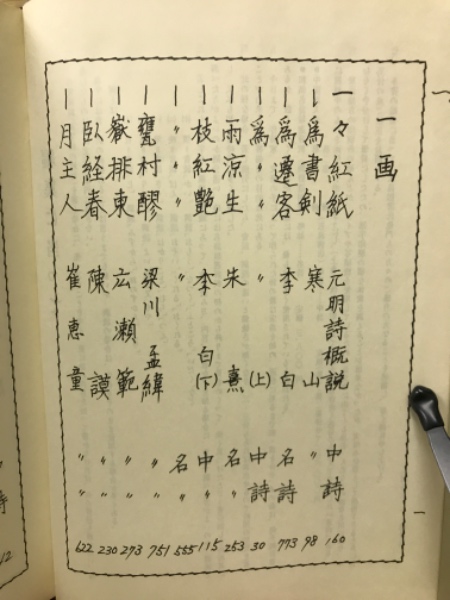 一画
一々紅紙 元明詩概説 中詩 160
｜為書剣 寒山 〃 98
｜為遷客 李白 名詩 773
｜為〃 〃(上) 中詩 30
｜雨涼生 朱熹 名〃 253
｜枝紅艶 李白(下) 中〃 115
｜〃〃〃 〃 名〃 555
｜甕村醪 梁川孟緯 〃〃 751
｜嶽排東 広瀬範 〃〃 273
｜臥経春 陳謨 〃〃 230
｜月主人 崔恵童 〃〃 622
一
詩
12